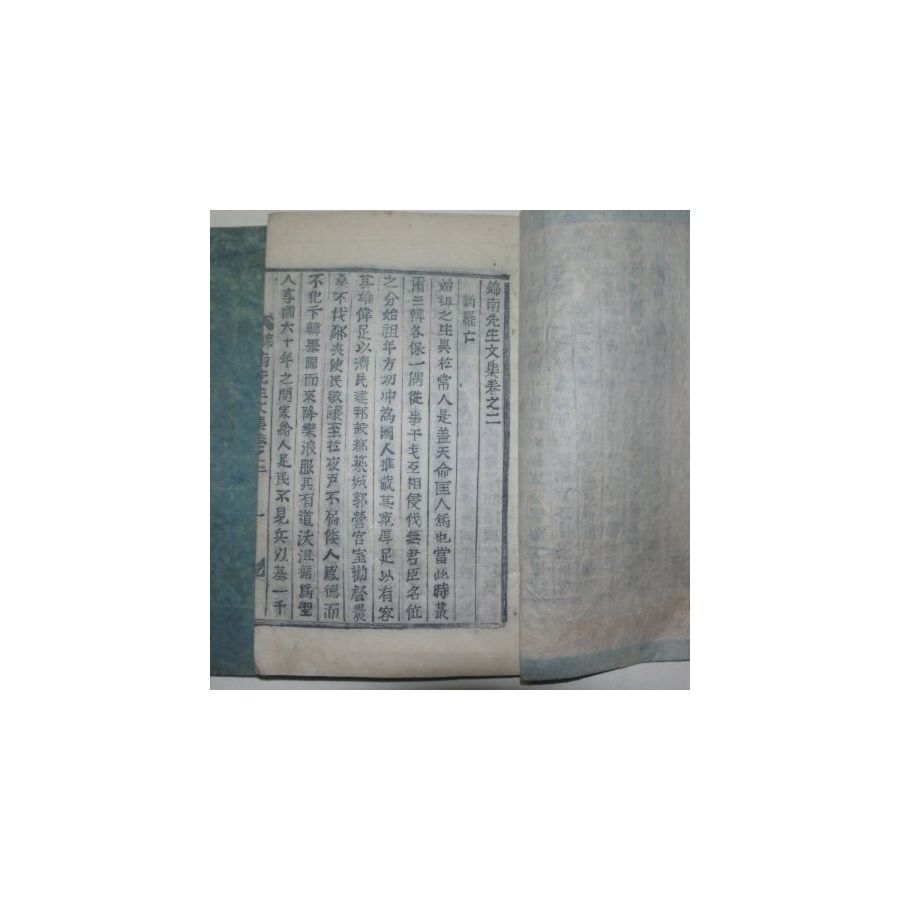 錦南先生文集卷之二
新羅亡
始祖之生異於常人是盖天命匡人焉也當此時蓁
國三韓各保一隅從事干戈互相侵伐無君臣名位
之分始祖年方幼冲為國人推戴其寛厚足以有容
其雄偉足以濟民建邦設都築城郭營宮室勸督農
桒不伐鄰喪使民敬讓至於夜戸不扃倭人感德而
不犯卞韓擧國而來降樂浪服其有道沃沮稱為聖
人享國六十年之間家給人足民不見兵以基一千
錦南先生文集卷之二 一